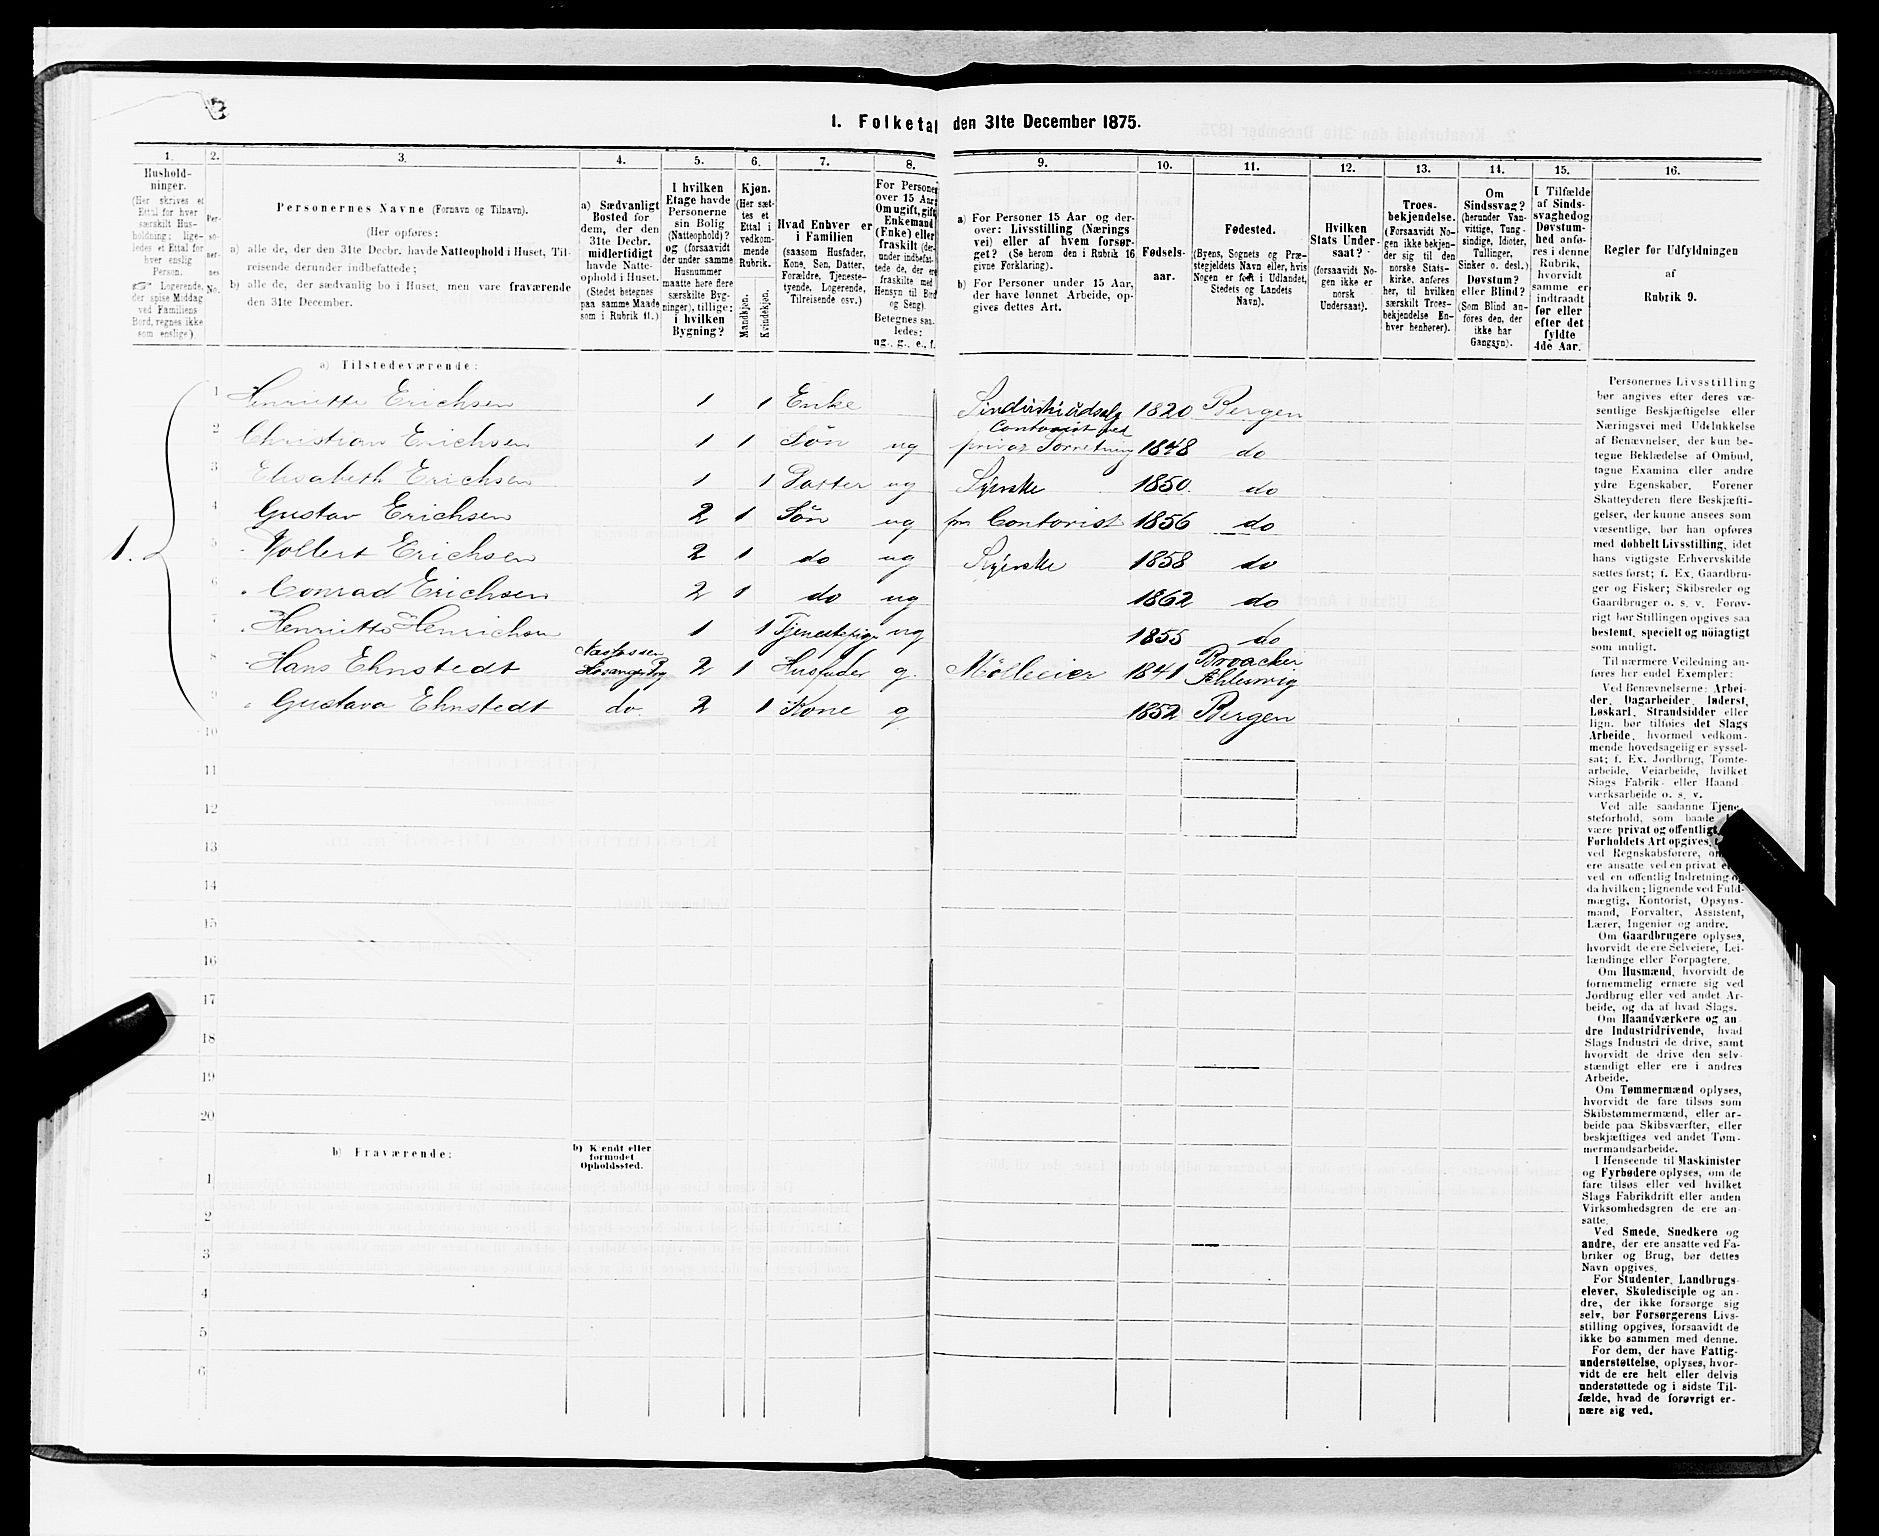 1. Folketal den 31te December 1875.
1. 2. 3. 4. 5. 6. 7. 8. 9. 10. 11. 12. 13. 14. 15. 16.
Hushold-
ninger.
(Her skrives et
Ettal for hver
særskilt Hus-
holdning; lige-
ledes et Ettal for
hver enslig
Person.
Logerende,
der spise Middag
ved Familiens
Bord, regnes ikke
som enslige).
Per-
so-
ner-
nes
No.
Personernes Navne (Fornavn og Tilnavn).
(Her opføres:
a) alle de, der den 31te Decbr. havde Natteophold i Huset, Til-
reisende derunder indbefattede;
b) alle de, der sædvanlig bo i Huset, men vare fraværende
den 31te December.
a) Sædvanligt
Bosted for
dem, der den
31te Decbr.
midlertidigt
havde Natte-
ophold i Huset.
(Stedet betegnes
paa samme Maade
som i Rubrik 11.)
I hvilken
Etage havde
Personerne
sin Bolig
(Natteophold)?
og (forsaavidt
der under samme
Husnummer
maatte høre flere
særskilte Byg-
ninger), tillige:
i hvilken
Bygning?
Kjøn.
(Her sæt-
tes et
Ettal i
vedkom-
mende
Rubrik.
Mandkjøn.
Kvindekjøn.
Hvad Enhver er
i Familien
(saasom Husfader,
Kone, Søn, Datter,
Forældre, Tjeneste-
tyende, Logerende,
Tilreisende osv.)
For Personer
over 15 Aar:
Om ugift, gift,
Enkemand
(Enke) eller
fraskilt (der-
under indbefat-
tede de, der ere
fraskilte med
Hensyn til Bord
og Seng).
Betegnes saa-
ledes:
ug., g., e., f.
a) For Personer 15 Aar og der-
over: Livsstilling (Nærings
vei) eller af hvem forsør-
get? (Se herom den i Rubrik 16
givne Forklaring).
b) For Personer under 15 Aar,
der have lønnet Arbeide, op-
gives dettes Art.
Fødsels-
aar.
Fødested.
(Byens, Sognets og Præ-
stegjeldets Navn eller, hvis
Nogen er født i Udlandet,
Stedets og Landets
Navn).
Hvilken
Stats Under-
saat?
(forsaavidt No-
gen ikke er
norsk
Undersaat).
Troes-
bekjendelse.
(Forsaavidt No-
gen ikke bekjen-
der sig til den
norske Stats-
kirke, anføres
her, til hvilken
særskilt Troes-
bekjendelse En-
hver henhører).
Om
Sindssvag?
(herunder Van-
vittige, Tung-
sindige, Idioter,
Tullinger,
Sinker o. desl.)
Døvstum?
eller Blind?
(Som Blind an-
føres den, der
ikke har
Gangsyn).
I Tilfælde
af Sinds-
svaghed og
Døvstum-
hed anfø-
res i denne
Rubrik,
hvorvidt
samme er
indtraadt
før eller
efter det
fyldte
4de Aar.
Regler for Udfyldningen
af
Rubrik 9.
a) Tilstedeværende:
1.
1 Henriette Erichsen 1 1 Enke 1820 Bergen
2 Christian Erichsen 1 1 Søn ug Contorist ved privat Forretning 1848 do
3 Elisabeth Erichsen 1 1 Datter ug Syerske 1850 do
4 Gustav Erichsen 2 1 Søn ug Contorist 1856 do
5 Volbert Erichsen 2 1 do ug Syerske 1858 do
6 Conrad Erichsen 2 1 do ug 1862 do
7 Henriette Henrichsen 1 1 Tjenestepige ug 1855 do
8 Hans Ehnstedt 2 1 Husfader g. Mølleeier 1841 Broacker Schleswig
9 Gustava Ehnstedt do. 2 1 Kone g 1852 Bergen
10
11
12
13
14
15
16
17
18
19
20
b) Fraværende:
b) Kjendt eller
formodet
Opholdssted.
1
2
3
4
5
6
Personernes Livsstilling
bør angives efter deres væ-
sentlige Beskjæftigelse eller
Næringsvei med Udelukkelse
af Benævnelser, der kun be-
tegne Beklædelse af Ombud,
tagne Examina eller andre
ydre Egenskaber. Forener
Skatteyderen flere Beskjæfti-
gelser, der kunne ansees som
væsentlige, bør han opføres
med dobbelt Livsstilling, idet
hans vigtigste Erhvervskilde
sættes først; f. Ex. Gaardbru-
ger og Fisker; Skibsreder og
Gaardbruger o. s. v. Forøv-
rigt bør Stillingen opgives saa
bestemt, specielt og nøiagtigt
som muligt.
Til nærmere Veiledning an-
føres her endel Exempler:
Ved Benævnelserne: Arbei-
der, Dagarbeider, Inderst,
Løskarl, Strandsidder eller
lign. bør tilføies det Slags
Arbeide, hvormed vedkom-
mende hovedsagelig er syssel-
sat; f. Ex. Jordbrug, Tomte-
arbeide, Veiarbeide, hvilket
Slags Fabrik- eller Haand-
værksarbeide o. s. v.
Ved alle saadanne Tjene-
steforhold, som baade
være privat og offentligt,
Forholdets Art opgives,
ved Regnskabsførere, om
ere ansatte ved en privat
ved en offentlig Indretning
da hvilken; lignende ved Fuld-
mægtig, Kontorist, Opsyns-
mand, Forvalter, Assistent,
Lærer, Ingeniør og andre.
Om Gaardbrugere oplyses,
hvorvidt de ere Selveiere, Lei-
lændinge eller Forpagtere.
Om Husmænd, hvorvidt de
fornemmelig ernære sig ved
Jordbrug eller ved andet Ar-
beide, og da af hvad Slags.
Om Haandværkere og an-
dre Industridrivende, hvad
Slags Industri de drive, samt
hvorvidt de drive den selv-
stændigt eller ere i andres
Arbeide.
Om Tømmermænd oplyses,
hvorvidt de fare tilsøs som
Skibstømmermænd, eller ar-
beide paa Skibsværfter, eller
beskjæftiges ved andet Tøm-
mermandsarbeide.
I Henseende til Maskinister
og Fyrbødere oplyses, om de
fare tilsøs eller ved hvilket
Slags Fabrikdrift eller anden
Virksomhedsgren de ere an-
satte.
Ved Smede, Snedkere og
andre, der ere ansatte ved Fa-
briker og Brug, bør dettes
Navn opgives.
For Studenter, Landbrugs-
elever, Skoledisciple og an-
dre, der ikke forsørge sig
selv, bør Forsørgerens Livs-
stilling opgives, forsaavidt de
ikke bo sammen med denne.
For dem, der have Fattig-
understøttelse, oplyses, hvor-
vidt de ere helt eller delvis
understøttede og i sidste Til-
fælde, hvad de forøvrigt er-
nære sig ved.